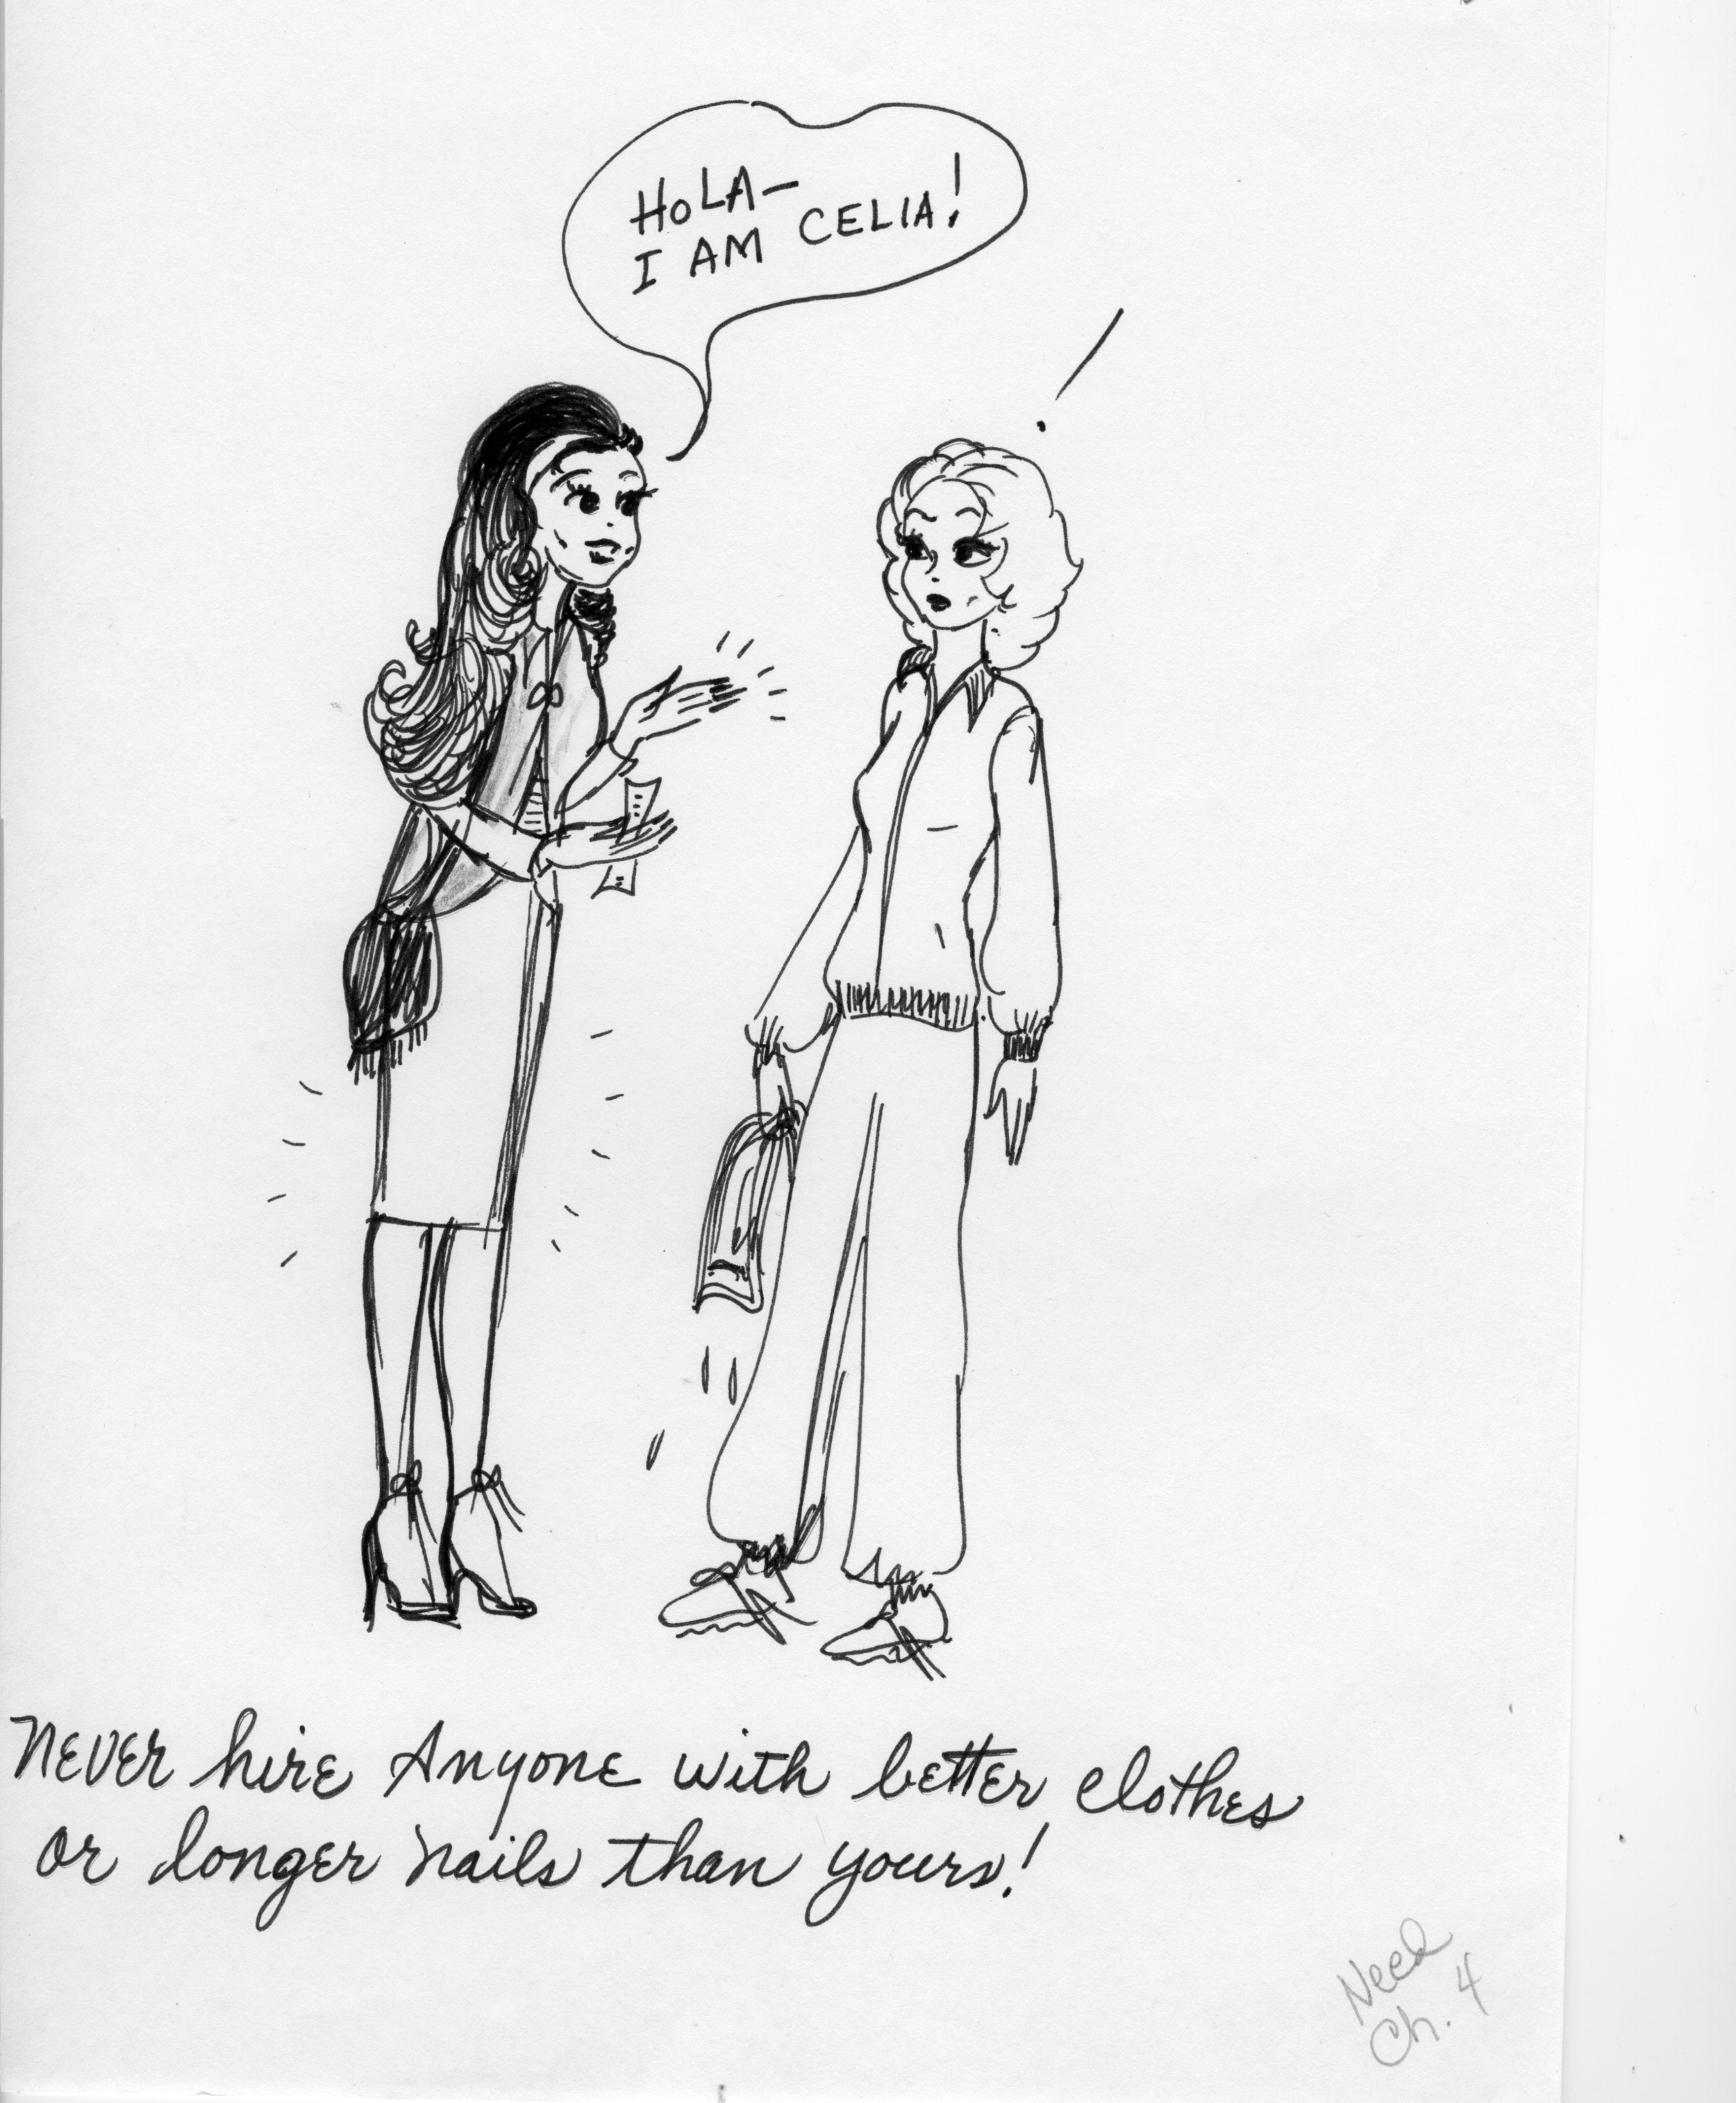 HOLA—
I AM CELIA!
!
Never hire Anyone with better clothes
or longer nails than yours!
Need
Ch. 4